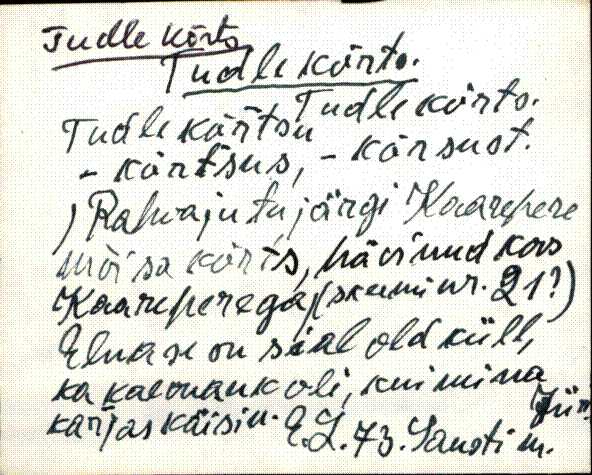 Tudle kõrts
Tudle kõrts.
Tudle kõrts.
Tudle kõrtsu
- kõrtsus, - kõrsust.
) Rahvajutu järgi Kaarepere
mõisa kõrts, hävinud koos
Kaareperega (skeemi nr. 21?)
Elukas on sääl old küll,
ka kaevankoli, kui mina
karjas käisin. E.L. 73. Jüri